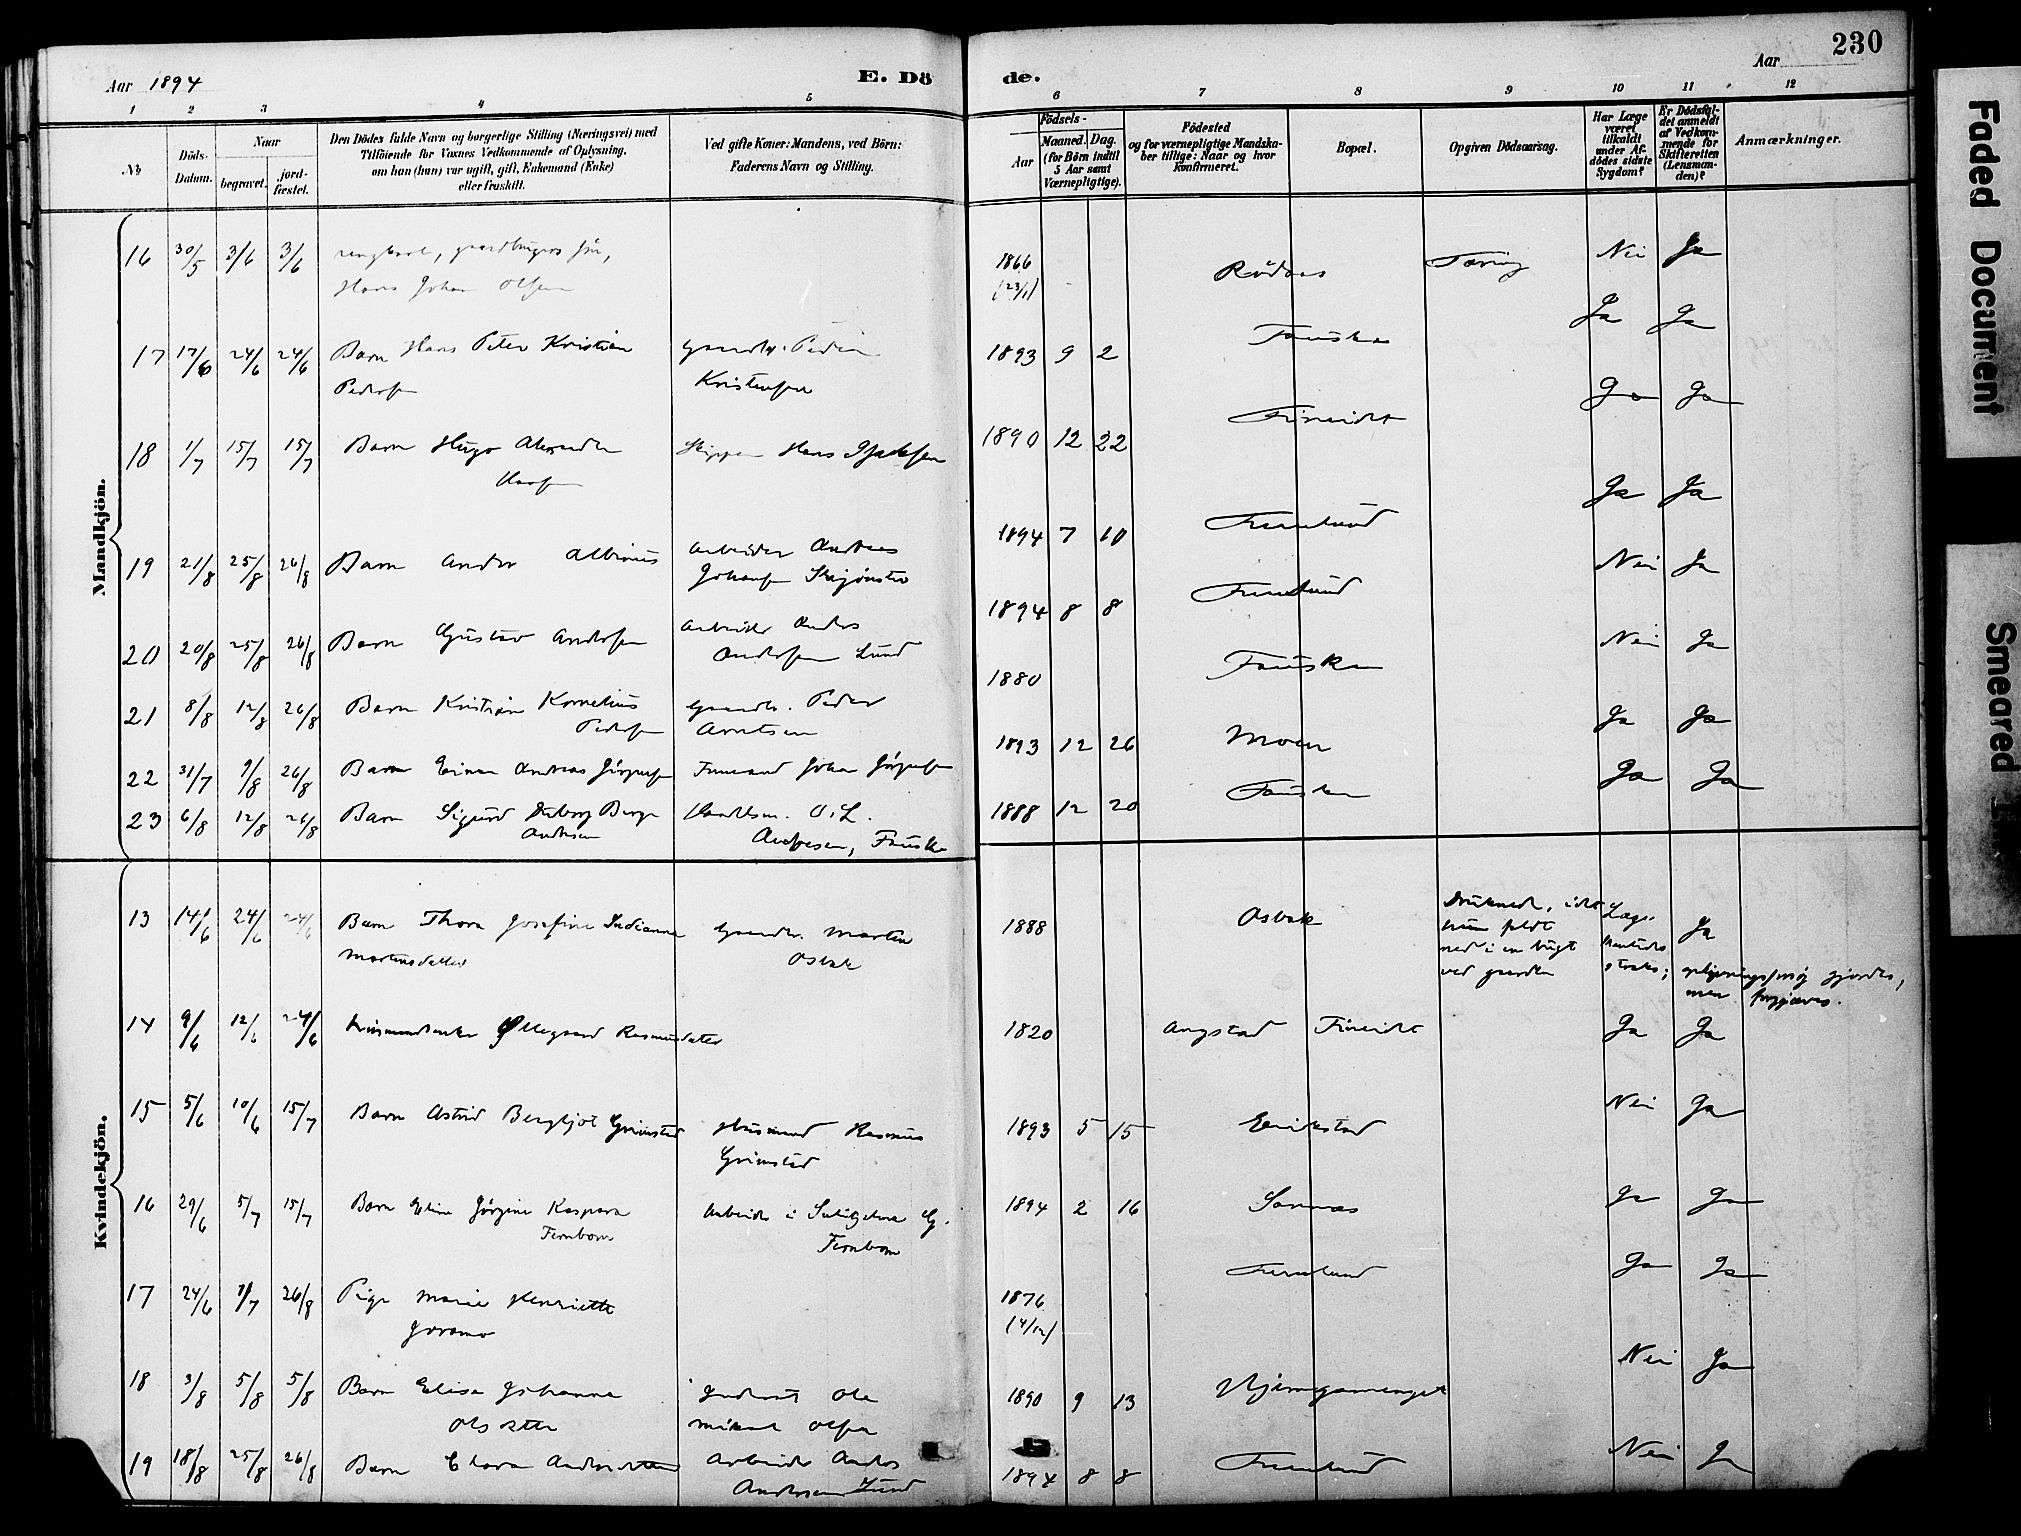 230
Aar 1894
E. Dö
de.
Aar
1 2 3 4 5 6 7 8 9 10 11 12
No
Döds-Datum.
Naar
begravet.
jord-fæstet.
Den Dödes fulde Navn og borgerlige Stilling (Næringsvei) med
Tilföiende for Voxnes Vedkommende af Oplysning,
om han (hun) var ugift, gift, Enkemand (Enke)
eller fraskilt.
Ved gifte Koner: Mandens, ved Börn:
Faderens Navn og Stilling.
Födsels-
Aar
Maaned. Dag.
(for Börn indtil
5 Aar samt
Værnepligtige).
Födested
og for værnepligtige Mandska-
ber tillige: Naar og hvor
konfirmeret.
Bopæl.
Opgiven Dödsaarsag.
Har Læge
været
tilkaldt
under Af-
dödes sidste
Sygdom?
Er Dödsfal-
det anmeldt
af Vedkom-
mende for
Skifteretten
(Lensman-
den)?
Anmærkninger.
Mandkjön.
16 30/5 3/6 3/6 ungkarl, gaardbrugers sön, 1866 Rödaas Tæring Nei Ja
Hans Johan Olsen (23/1)
17 17/6 24/6 24/6 Barn Hans Peter Kristian gaardbr. Peder 1893 9 2 Fauske Ja Ja
Pedersen Kristensen
18 1/7 15/7 15/7 Barn Hugo Alexander Skipper Hans Isaksen 1890 12 22 Finneidet Ja Ja
Hansen
19 21/8 25/8 26/8 Barn Andor Albinus Arbeider Andreas 1894 7 10 Furulund Ja Ja
Johansen
20 20/8 25/8 26/8 Barn Gustav Andersen Arbeider Anders 1894 8 8 Furulund Nei Ja
Andersen Lund
21 8/8 12/8 26/8 Barn Kristian Kornelius gaardbr. Peder 1880 Fauske Nei Ja
Pedersen Arntsen
22 31/7 9/8 26/8 Barn Einar Andreas Jörgensen Johan Jörgensen 1893 12 26 Moen Ja Ja
23 6/8 12/8 26/8 Barn Sigurd Berge Handelsm. O. L. 1888 12 20 Fauske Ja Ja
Andresen Andresen, Fauske
Kvindekjön.
13 14/6 24/6 24/6 Barn Thora Josefine Indianna Gaardbr. Martin 1888 Osbak Druknede, idet Læge Ja
Martinsdatter Osbak hun faldt
ned i en
ved gaarden straks; oplivningsforsög gjordes,
men forgjæves.
14 9/6 12/6 24/6 Husmandsenke Ollegaard Rasmusdatter 1820 Finneidet Ja Ja
15 5/6 10/6 15/7 Barn Astrid Bergljot Grimstad Husmand Rasmus 1893 5 15 Erikstad Nei Ja
Grimstad
16 29/6 5/7 15/7 Barn Jörgine Kaspara Arbeider i Sulitjelma G. 1894 2 16 Ja Ja
Fernbom Fernbom
17 24/6 1/7 26/8 Pige Marie Henriette 1876 Furulund Ja Ja
(4/12)
18 3/8 5/8 5/8 Barn Elise Johanna Inderst Ole 1890 9 13 Nei Ja
Olsdatter Mikal Olsen
19 18/8 25/8 26/8 Barn Clara Andersdatter Arbeider Anders 1894 8 8 Furulund Nei Ja
Andersen Lund
Faded Document
Smeared